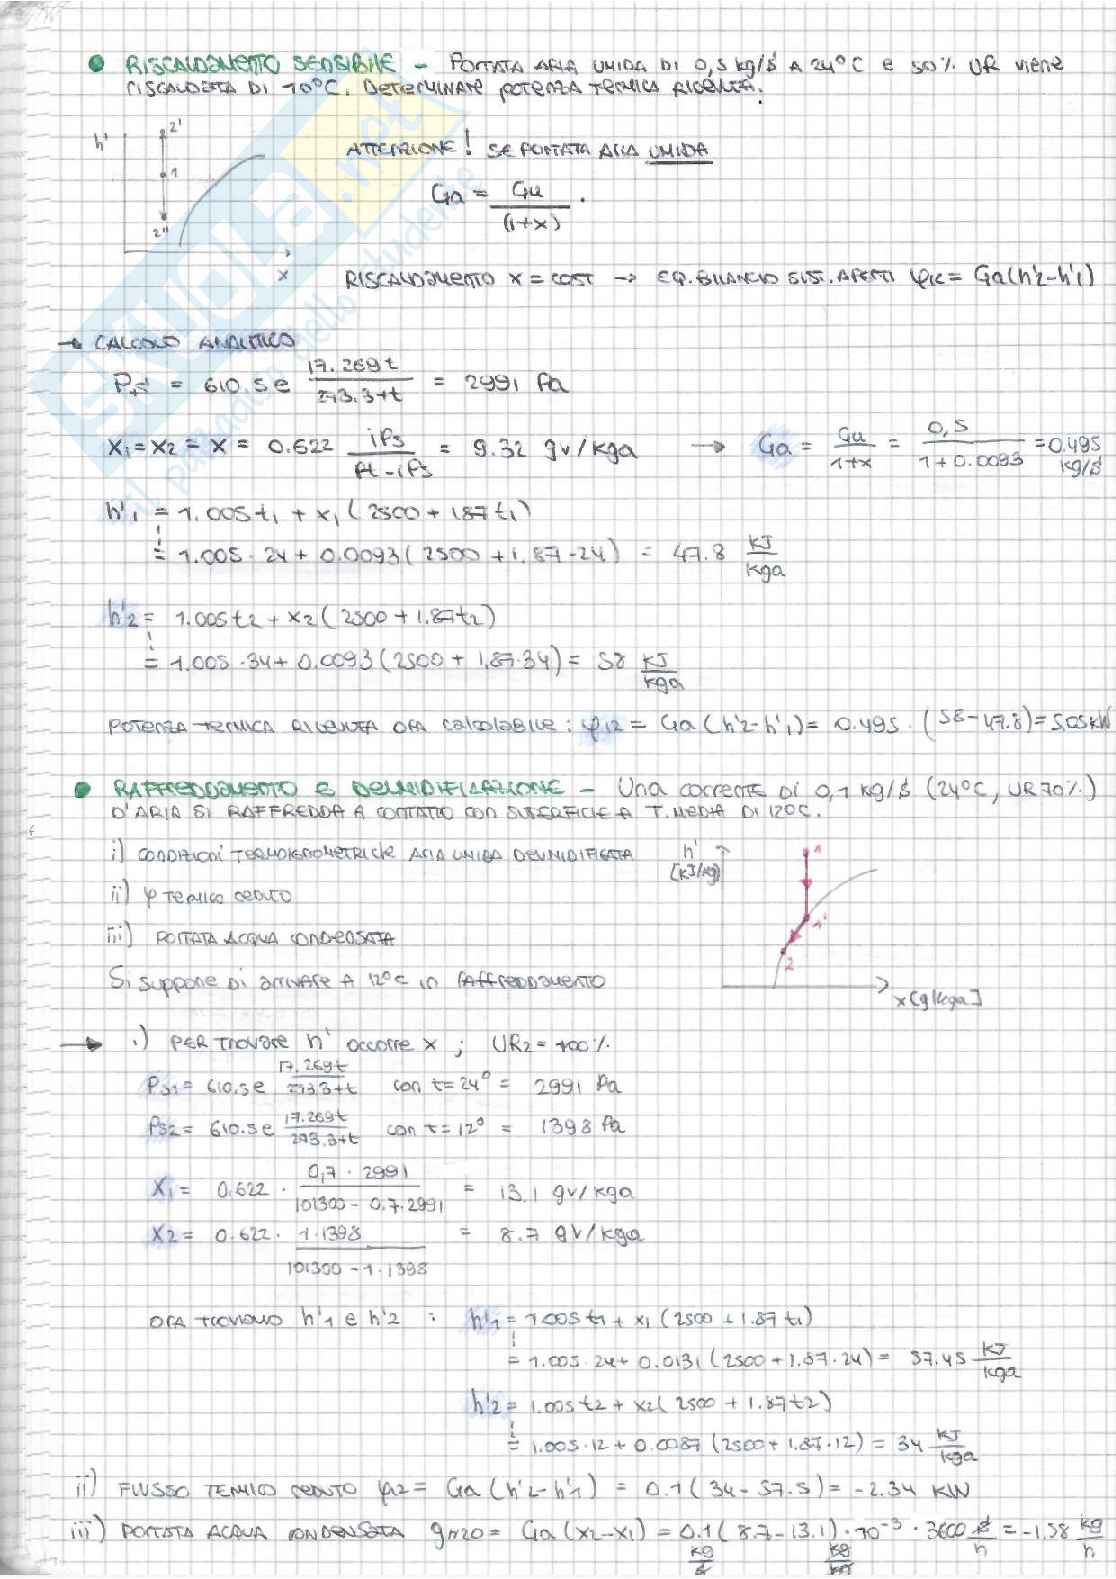 • RISCALDAMENTO SENSIBILE - PORTATA ARIA UMIDA DI 0,5 kg/s A 24°C e 50% UR viene
RISCALDATA DI 10°C. Determinare potenza termica RICEVUTA.
h' 2' 1 2'' x
ATTENZIONE! SE PORTATA ARIA UMIDA
Ga = Gu / (1+x) .
RISCALDAMENTO x = COST → EQ. BILANCIO SIST. APERTI φ12 = Ga(h'2-h'1)
→ CALCOLO ANALITICO
Ps = 610.5 e 17.269t / 273.3+t = 2991 Pa
X1 = X2 = X = 0.622 iPs / Pt - iPs = 9.32 gv/kga → Ga = Gu / 1+x = 0,5 / 1+0.0093 = 0.495 kg/s
h'1 = 1.005t1 + x1 (2500 + 1.87t1)
= 1.005 · 24 + 0.0093 (2500 + 1.87·24) = 47.8 kJ/kga
h'2 = 1.005t2 + x2 (2500 + 1.87t2)
= 1.005 · 34 + 0.0093 (2500 + 1.87·34) = 58 kJ/kga
POTENZA TERMICA RICEVUTA ORA calcolabile : φ12 = Ga (h'2-h'1) = 0.495 · (58-47.8) = 5,05 kW
• RAFFREDDAMENTO E DEUMIDIFICAZIONE - Una corrente di 0,1 kg/s (24°C, UR 70%)
D'ARIA SI RAFFREDDA A CONTATTO CON SUPERFICIE A T. MEDIA DI 12°C.
i) CONDIZIONI TERMOIGROMETRICHE ARIA UMIDA DEUMIDIFICATA
ii) φ TERMICO CEDUTO
iii) PORTATA ACQUA CONDENSATA
h' [kJ/kg] 1 1' 2 x [g/kga]
Si suppone di arrivare A 12°C in Raffreddamento
→ .) PER TROVARE h' occorre x ; UR2 = 100%.
Ps1 = 610.5 e 17.269t / 273.3+t con t = 24° = 2991 Pa
Ps2 = 610.5 e 17.269t / 273.3+t con t = 12° = 1398 Pa
X1 = 0.622 · 0,7 · 2991 / 101300 - 0.7·2991 = 13.1 gv/kga
X2 = 0.622 · 1·1398 / 101300 - 1·1398 = 8.7 gv/kga
ORA TROVIAMO h'1 e h'2 : h'1 = 1.005 t1 + x1 (2500 + 1.87 t1)
= 1.005 · 24 + 0.0131 (2500 + 1.87·24) = 57.45 kJ/kga
h'2 = 1.005 t2 + x2 (2500 + 1.87 t2)
= 1.005 · 12 + 0.0087 (2500 + 1.87·12) = 34 kJ/kga
ii) FLUSSO TERMICO CEDUTO φ12 = Ga (h'2-h'1) = 0.1 (34 - 57.5) = -2.34 kW
iii) PORTATA ACQUA CONDENSATA gH2O = Ga (x2-x1) = 0.1 (8.7-13.1) · 10⁻³ · 3600 s/h = -1.58 kg/h
kg/s kg/kga